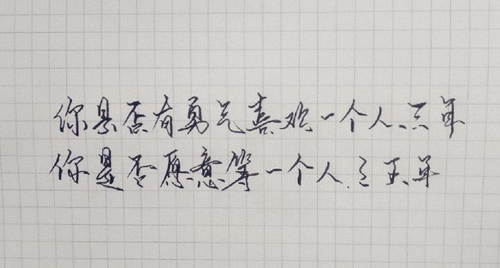 你是否有勇气喜欢一个人、三年
你是否愿意等一个人.三五年